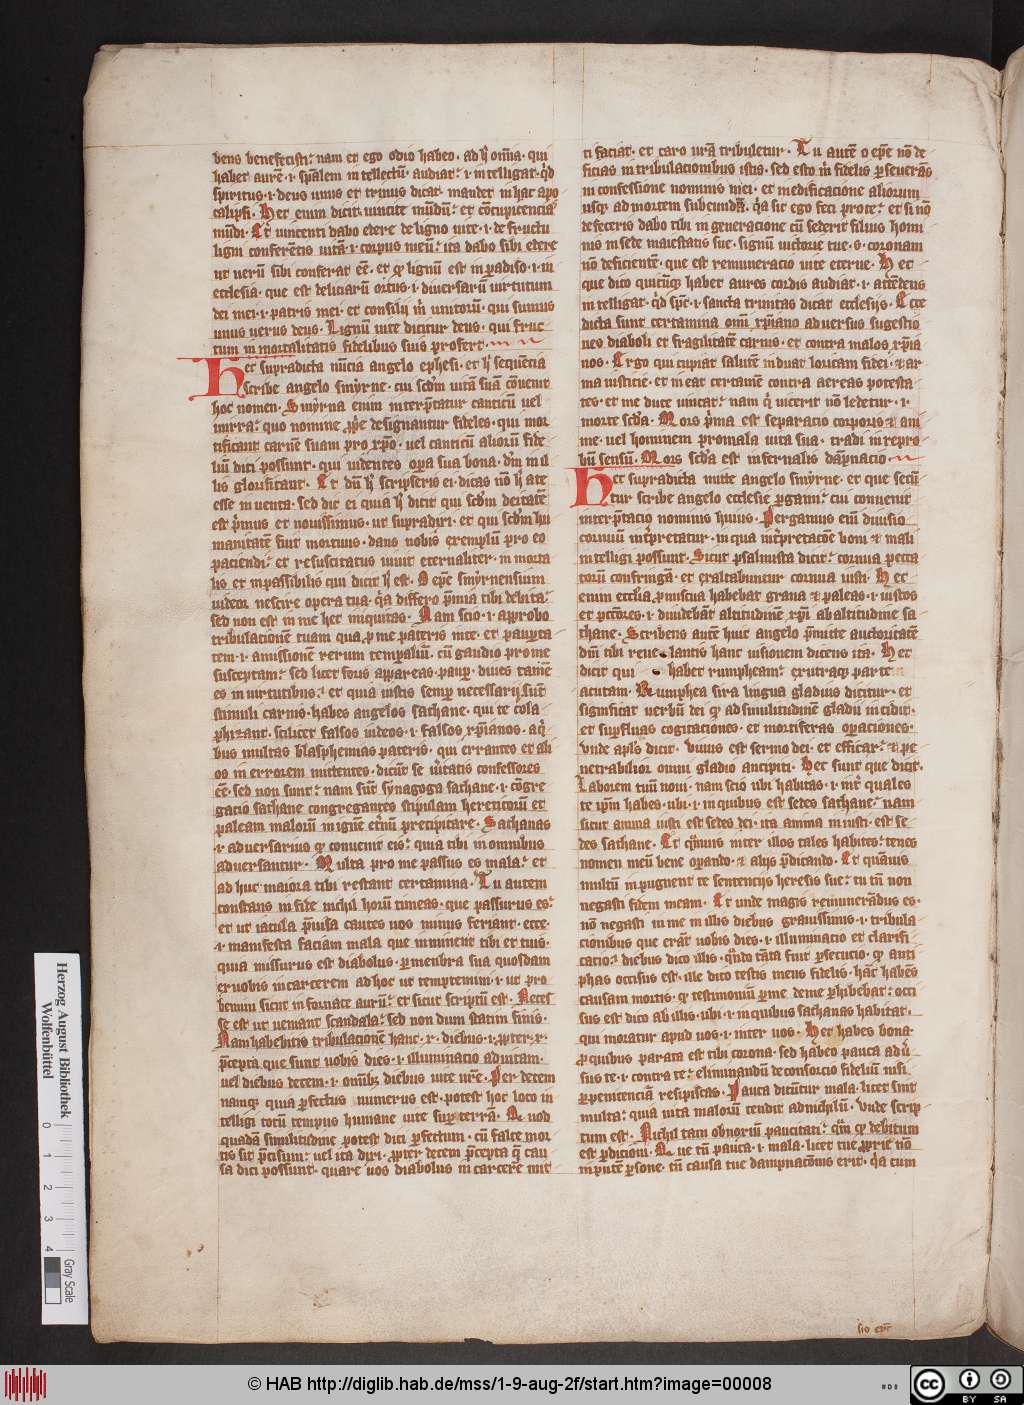 bens benefecisti: nam et ego odio habeo. ad hͥ om̄ia. qui
habet aurē. i. spālem intellectū. audiat: i. intelligat. qͥd
spiritus. i. deus unus et trinus dicat. mandet in hac apo
calipsi. Hec enim dicit. vincite mūdū: et cōcupicencia
mūdi. Et vincenti dabo edere de ligno vite. i. de fructu
ligni conferētis vitā. i. corpus meū: ita dabo sibi edere
ut verū sibi conferat eē. et qͥ lignū est in ꝑadiso. i. in
ecclesia. que est deliciarū ortus. i. diversarū virtutum
dei mei. i. patris mei. et consilij m̄ unitorū. qui sumus
unus verus deus. Lignū vite dicitur deus. qui fruc
tum inmortalitatis fidelibus suis profert.
Hec supradicta nūcia angelo ephesi. et hͥ sequēcia
scribe angelo smyrne. cui scdm vitā suā cōvenit
hoc nomen. Smyrna enim interp̄tatur canticū vel
mirra: quo nomine designantur fideles. qui mor
tificant carnē suam pro xp̄o. vel canticū aliorū fide
liū dici possunt. qui videntes oꝑa sua bona. dm̄ in il
lis glorificant. Et dū hͥ scripseris ei. dicas nō hͥ a te
esse inventa. sed dic ei quia hͥ dicit qui scdm deitatē
est pͥmus et novissimus. ut supradixi. et qui scdm hu
manitatē fuit mortuus. dans nobis exemplū pro eo
paciendi: et resuscitatus vivit eternaliter. inmorta
lis et inpassibilis qui dicit hͥ est. O ep̄e smyrnensium
videor nescire opera tua. qͥa differo pͥmia tibi debita:
sed non est in me hec iniquitas. Nam scio. i. approbo
tribulationē tuam quā ꝓ me pateris inte. et paupta
tem. i. amissionē rerum temꝑaliū. cū gaudio pro me
susceptam: sed licet foris appareas pauꝑ. dives tamē
es in virtutibus: et quia iustis semꝑ necessarij sūt
stimuli carnis. habes angelos sathane. qui te cola
phizant. scilicet falsos iudeos. i. falsos xp̄ianos. a qͥ
bus multas blasphemias pateris. qui errantes et ali
os in errorem mittentes. dicūt se vͥitatis confessores
eē. sed non sunt: nam sūt synagoga sathane. i. cōgre
gacio sathane congregantes stipulam hereticorū et
paleam malorū in ignē etͥnū precipitare. Sathanas
.i. adversarius qͥ convenit eis: quia tibi in omnibus
adversantur. Multa pro me passus es mala: et
ad huc maiora tibi restant certamina. Tu autem
constans in fide nichil horū timeas. que passurus es:
et ut iacula pͥvisa cautes vos minus feriant. ecce.
.i. manifesta faciam mala que inminent tibi et tuis.
quia missurus est diabolus. ꝑ menbra sua quosdam
ex vobis in carcerem ad hoc ut temptemini. i. ut pro
bemini sicut in fornace aurū: et sicut scriptū est. Neces
se est ut veniant scandala: sed non dum statim finis.
Nam habebitis tribulationē hanc. x. diebus. i. ꝓpter. x.
pͥcepta que sunt vobis dies. i. illuminacio ad vitam.
vel diebus decem. i. omībꝫ diebus vite vrē. Per decem
namqꝫ quia ꝑfectus numerus est. potest hoc loco in
telligi totū tempus humane vite suꝑ terrā. Ac vod
quadā similitudine potest dici ꝑfectum. cū falce mor
tis sit pͥcisum: vel ita dixi. ꝓpter decem pͥcepta qͥ cau
sa dici possunt. quare vos diabolus in carcere mit
ti faciat. et caro vrā tribuletur. Tu autē o ep̄e nō de
ficias in tribulacionibus istis. sed esto m̄ fidelis ꝑseverās
in confessione nominis mei. et in edificatione aliorum
usqꝫ ad mortem subeundā. qͥa sic ego feci pro te: et si nō
defeceris dabo tibi in generacione cū sederit filius homi
nis in sede maiestatis sue. signū victorie tue. s. coronam
nō deficientē. que est remuneracio vite eterne. Hec
que dico quicūqꝫ habet aures cordis audiat. i. attēdens
intelligat. qͥd spc̄. i. sancta trinitas dicat ecclesijs. Ecce
dicta sunt certamina omī xp̄iano adversus sugestio
nes diaboli et fragilitatē carnis. et contra malos xp̄ia
nos. Ergo qui cupiat salutē induat loricam fidei. et ar
ma iusticie. et ineat certamē contra aereas potesta
tes. et me duce vincat: nam qͥ vicerit nō ledetur. i.
morte scda. Mors pͥma est separatio corporis et ani
me. vel hominem pro mala vita sua. tradi in repro
bū sensū. Mors scda est infernalis dāpnacio.
Hec supradicta mitte angelo smyrne. et que secū
tur scribe angelo ecclesie pergami: cui convenit
interp̄tacio nominis huius. Pergamus eiū divisio
cornuū intͥpretatur. in qua intͥpretacōe boni et mali
intelligi possunt. Sicut psalmista dicit: cornua pecca
torū confringā. et exaltabuntur cornua iusti. Hec
enim ecclia ꝓmiscua habebat grana et paleas. i. iustos
et pctōres. i. dividebāt altitudinē xp̄i ab altitudine sa
thane. Scribens autē huic angelo pͥmitte auctoritatē
dn̄i tibi revelantis hanc visionem dicens ita. Hec
dicit qui habet rumpheam: ex utraqꝫ parte
acutam. Rumphea sira lingua gladius dicitur. et
significat verbū dei qͥ ad similitudinē gladii incidit.
et suꝑfluas cogitaciones. et mortiferas oꝑaciones.
Unde apls̄ dicit. Vivus est sermo dei. et efficax: et pe
netrabilior omni gladio ancipiti. Hec sunt que dicit.
Laborem tuū novi. nam scio ubi habitas. i. intͥ quales
te ip̄m habes. ubi. i. in quibus est sedes sathane: nam
sicut anima iusti est sedes dei. ita anima iniusti. est se
des sathane. Et qͥmvis inter illos tales habites: tenes
nomen meū bene oꝑando. et alijs pͥdicando. Et quāvis
multū inpugnent te sentencijs heresis sue: tu tn̄ non
negasti fidem meam. Et unde magis remunerādus es.
nō negasti in me in illis diebus gravissimis. i. tribula
cionibus que erāt vobis dies. i. illuminacio et clarifi
catio: diebus dico illis. qͥndo tāta fuit ꝑsecucio. qͥ anti
phas occisus est. ille dico testis meus fidelis. hāc habēs
causam mortis. qͥ testimoniū ꝑ me de me ꝑhibebat: occi
sus est dico ab illis. ubi. i. in quibus sathanas habitat.
qui moratur apud vos. i. inter vos. Hec habes bona.
ꝓ quibus parata est tibi corona. sed habeo pauca advͥ
sus te. i. contra te: eliminandū de consorcio fideliū nisi
ꝑ penitenciā resipiscas. Pauca dicūtur mala. licet sint
multa: quia vita malorū tendit ad nichilū. Unde scrip
tum est. Nichil tam obnoxiū paucitati: qͥm qͥ debitum
est ꝑdicioni. Ac ue tū pauca. i. mala. licet tue ꝓprie nō
inputē ꝑsone. tn̄ causa tue dampnaciōis erit. qͥa cum
Herzog August Bibliothek
Wolfenbüttel
0 1 2 3 4
Gray Scale
© HAB http://diglib.hab.de/mss/1-9-aug-2f/start.htm?image=00008
cc BY SA